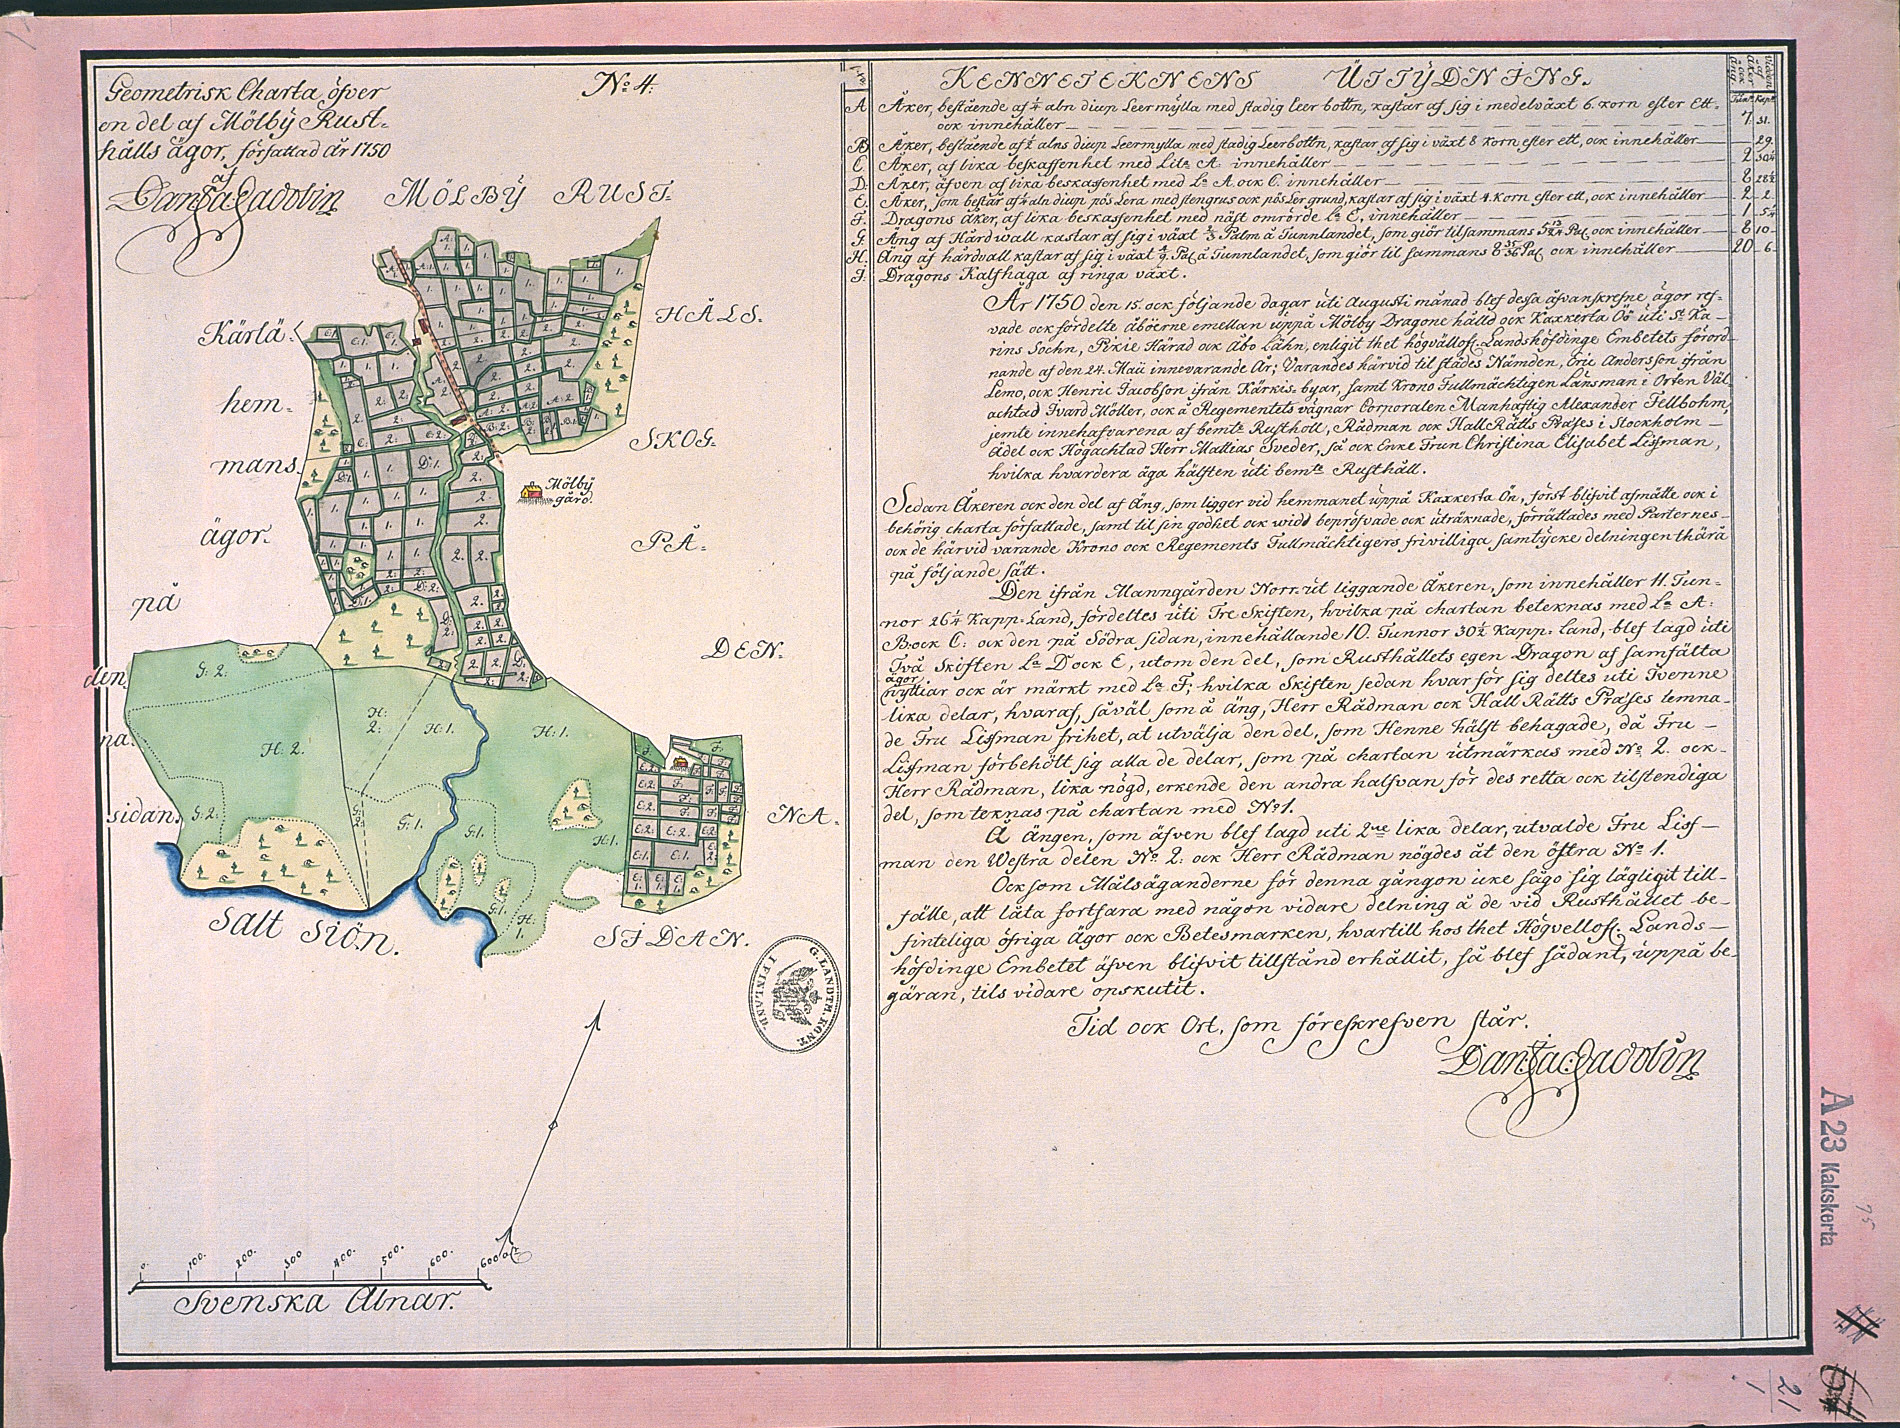 Geometrisk Charta öfver
en del af Mölbÿ Rust-
hålls ägor, författad år 1750
af
Dan: Jac: Jacobin
No. 4.
MÖLBŸ RUST-
HÅLS-
SKOG-
PÅ-
DEN-
NA-
SIDAN.
Kärlä-
hem-
mans-
ägor.
på
den-
na-
sidan.
Mölbÿ
gård.
Salt Siön.
0. 100. 200. 300 400. 500. 600. 600 al:r
Svenska Alnar.
G. LANDTM. KONT. I FINLAND.
KENNETEKNENS ŬTTŸDNING.
A Åker, bestående af 1/4 aln diup Leermylla med stadig Leer bottn, kastar af sig i medelväxt 6. korn efter Ett-
ock innehåller 7 31.
B Åker, bestående af alns diup Leermylla med stadig Leerbottn, kastar af sig i växt 8 korn efter ett, ock innehåller 29.
C. Åker, af lika beskaffenhet med Litr. A innehåller 2
D. Åker, äfven af lika beskaffenhet med La A. ock C. innehåller 8 28½
E. Åker, som består af aln diup pös Lera med stengrus ock pös Ler grund, kastar af sig i växt 4. korn efter ett, ock innehåller 2 2
F. Dragons Åker, af lika beskaffenhet med näst omrörde La E. innehåller 1
G. Äng af Hårdwall kastar af sig i växt 2/3 Palm å Tunnlandet, som giör tilsammans ock innehåller 8 10
H. Äng af hårdvall kastar af sig i växt å Tunnlandet, som giör til sammans ock innehåller 20 6
I. Dragons Kalfhaga af ringa växt.
År 1750 den 15. ock följande dagar uti Augusti månad blef dessa ofvanskrefne ägor ref-
vade ock fördelte åböerne emellan uppå Mölby Dragone håld ock Kaxkerta Öö uti St Ka-
rins Sochn, Pikie Härad ock Åbo Lähn, enligit thet högvällofl. Landshöfdinge Embetets förord-
nande af den 24. Maii innevarande År; Varandes härvid til städes Nämden, Eric Andersson ifrån
Lemo, ock Henric Jacobson ifrån Kärkis-byar, samt Krono Fullmächtigen Länsman i Orten Väl
achtad Ivard Möller, ock å Regementets vägnar Corporalen Manhaftig Alexander Fellbohm,
jemte innehafvarena af bemte Rusthåll, Rådman ock Hall Rätts Præses i Stockholm
Ädel ock Högachtad Herr Mattias Sveder, så ock Enke Frun Christina Elisabet Lissman,
hvilka hvardera äga hälften uti bemte Rusthåll.
Sedan Åkeren ock den del af Äng, som ligger vid hemmanet uppå Kaxkerta Ön, först blifvit afmätte ock i
behörig charta författade, samt til sin godhet ock widd bepröfvade ock uträknade, förrättades med Parternes-
ock de härvid varande Krono ock Regements Fullmächtigers frivilliga samtÿcke delningen thärå
på följande sätt.
Den ifrån Manngården Norr-ut liggande Åkeren, som innehåller 11. Tun-
nor 26¼ Kapp-Land, fördeltes uti Tre Skiften, hvilka på chartan beteknas med La A:
B. ock C: ock den på Södra sidan, innehållande 10. Tunnor 30½ Kapp-Land, blef lagd uti
Två Skiften La D ock E, utom den del, som Rusthållets egen Dragon af samfälta
ägor
nyttiar ock är märkt med La F; hvilka Skiften sedan hvar för sig deltes uti Tvenne
lika delar, hvaraf, såväl som å äng, Herr Rådman ock Hall Rätts Præses lemna-
de Fru Lissman frihet, at utvälja den del, som Henne hälst behagade, då Fru
Lissman förbehölt sig alla de delar, som på chartan utmärkas med No 2. ock-
Herr Rådman, lika nögd, erkende den andra halfvan för des retta ock tilstendiga
del, som teknas på chartan med No 1.
Å Ängen, som äfven blef lagd uti 2ue lika delar, utvalde Fru Liss-
man den Westra delen No 2: ock Herr Rådman nögdes åt den östra No 1.
Ock som Målsäganderne för denna gången icke sågo sig lägligit till-
fälle, att låta fortfara med någon vidare delning å de vid Rusthållet be-
finteliga öfriga Ägor ock Betesmarken, hvartill hos thet Högvellofl. Lands-
höfdinge Embetet äfven blifvit tillstånd erhållit, så blef sådant, uppå be-
gäran, tils vidare opskutit.
Tid ock Ort, som föreskrefven står.
Dan: Jac: Jacobin
A 23 Kakskerta
75
21
1